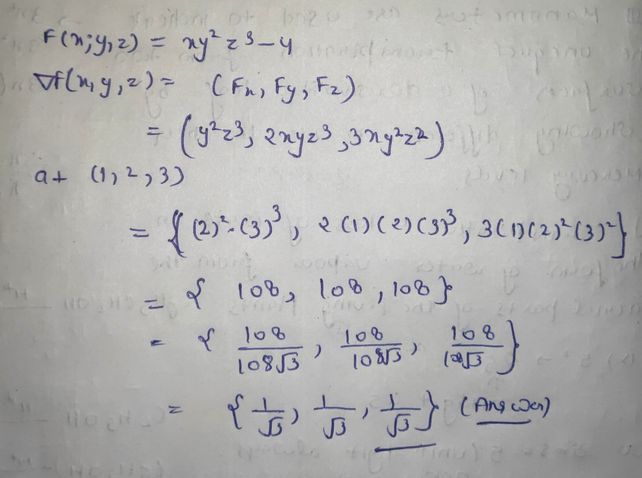 F(x,y,z) = xy²z³-4
∇f(x,y,z) = (Fx, Fy, Fz)
= (y²z³, 2xyz³, 3xy²z²)
at (1,2,3)
= {(2)²·(3)³, 2(1)(2)(3)³, 3(1)(2)²(3)²}
= { 108, 108, 108 }
= { 108/108√3, 108/108√3, 108/108√3 }
= { 1/√3, 1/√3, 1/√3 } (Answer)